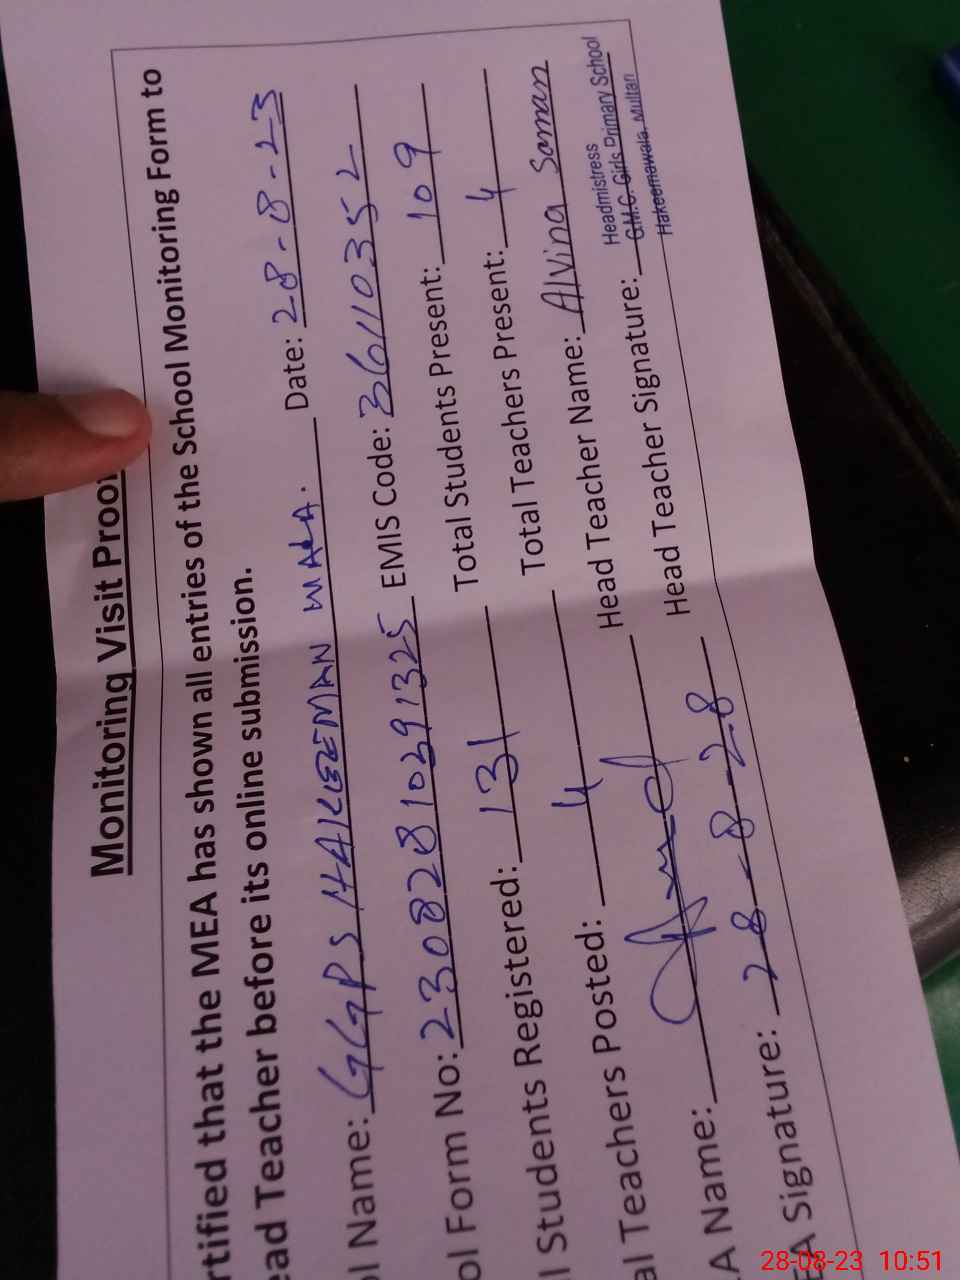 Monitoring Visit Proof
rtified that the MEA has shown all entries of the School Monitoring Form to
ead Teacher before its online submission.
ol Name: GGPS HAKEEMAN WALA. Date: 28-8-23
ol Form No: 23082810391325 EMIS Code: 36110352
l Students Registered: 131 Total Students Present: 109
al Teachers Posted: 4 Total Teachers Present: 4
A Name: Head Teacher Name: Alvina Saman
EA Signature: 28-8-28 Head Teacher Signature:
Headmistress
G.M.C. Girls Primary School
Hakeemawala, Multan
28-08-23 10:51